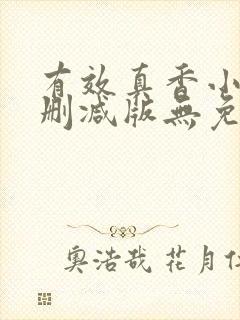 有效真香小
删减版無免
奥浩哉 花月仁